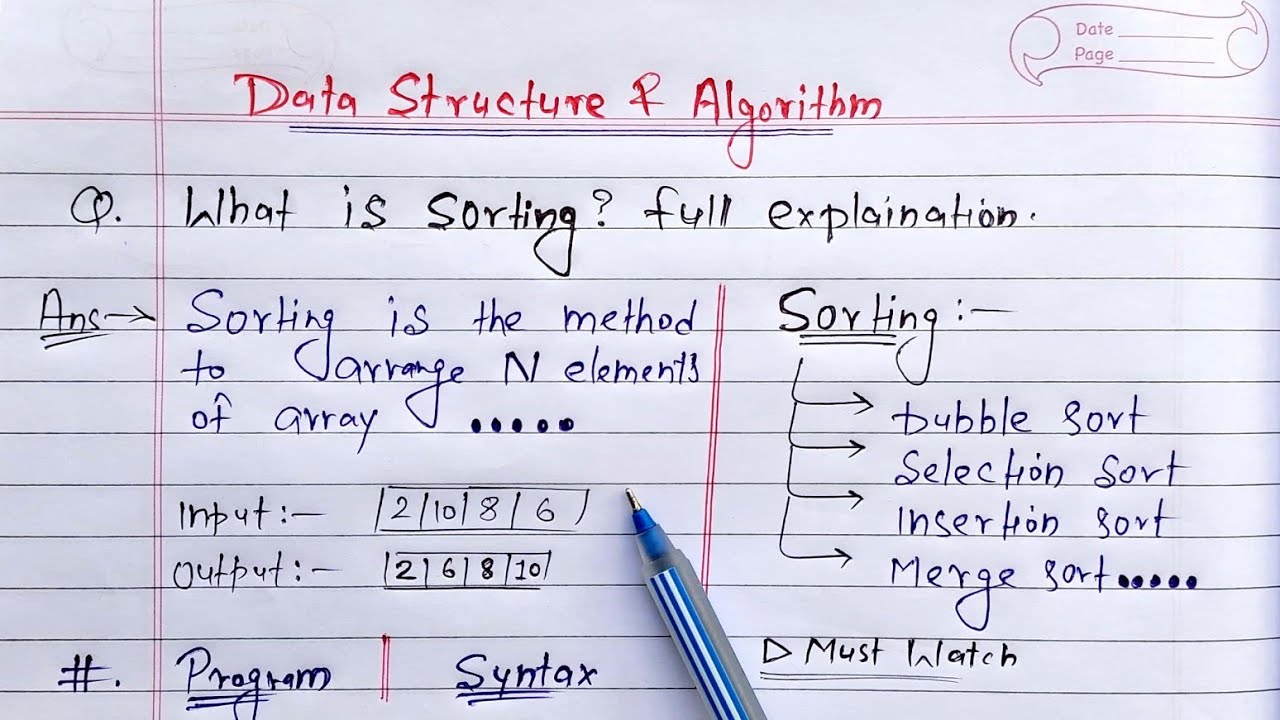 Date
Page
Data Structure & Algorithm
Q. What is Sorting? full explaination.
Ans→ Sorting is the method
to arrange N elements
of array .....
Input:- |2|10|8|6|
Output:- |2|6|8|10|
Sorting:-
Bubble Sort
Selection Sort
Insertion Sort
Merge Sort.....
#. Program | Syntax
▷ Must Watch